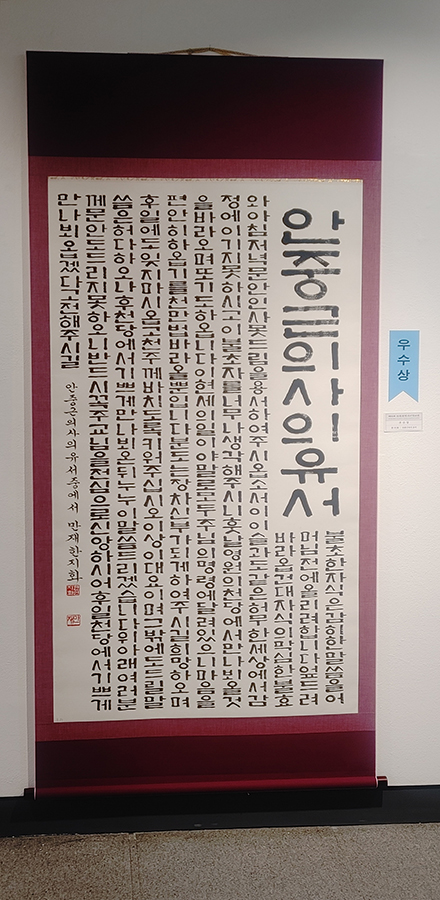 안중근의사의유서
불초한자식은감히한말씀을어
머님전에올리려합니다엎드려
바라옵건대자식의막심한불효
와아침저녁문안인사못드림을용서하여주시옵소서이슬과도같은허무한세상에서감
정에이기지못하시고이불초자를너무나생각해주시니훗날영원의천당에서만나뵈올것
을바라오며또기도하옵니다이현세의일이야말로모두주님의명령에달려있으니마음을
편안히하옵기를천만번바라올뿐입니다분도는장차신부가되게하여주시길희망하오며
후일에도잊지마시옵고천주께바치도록키워주십시오이상이대요이며그밖에도드릴말
씀은허다하오나후천당에서기쁘게만나뵈온뒤누누이말씀드리겠습니다위아래여러분
께문안도드리지못하오니반드시꼭주교님을전심으로신앙하시어후일천당에서기쁘게
만나뵈옵겠다고전해주시길
안중근의사의유서중에서 만재한지화
우수상